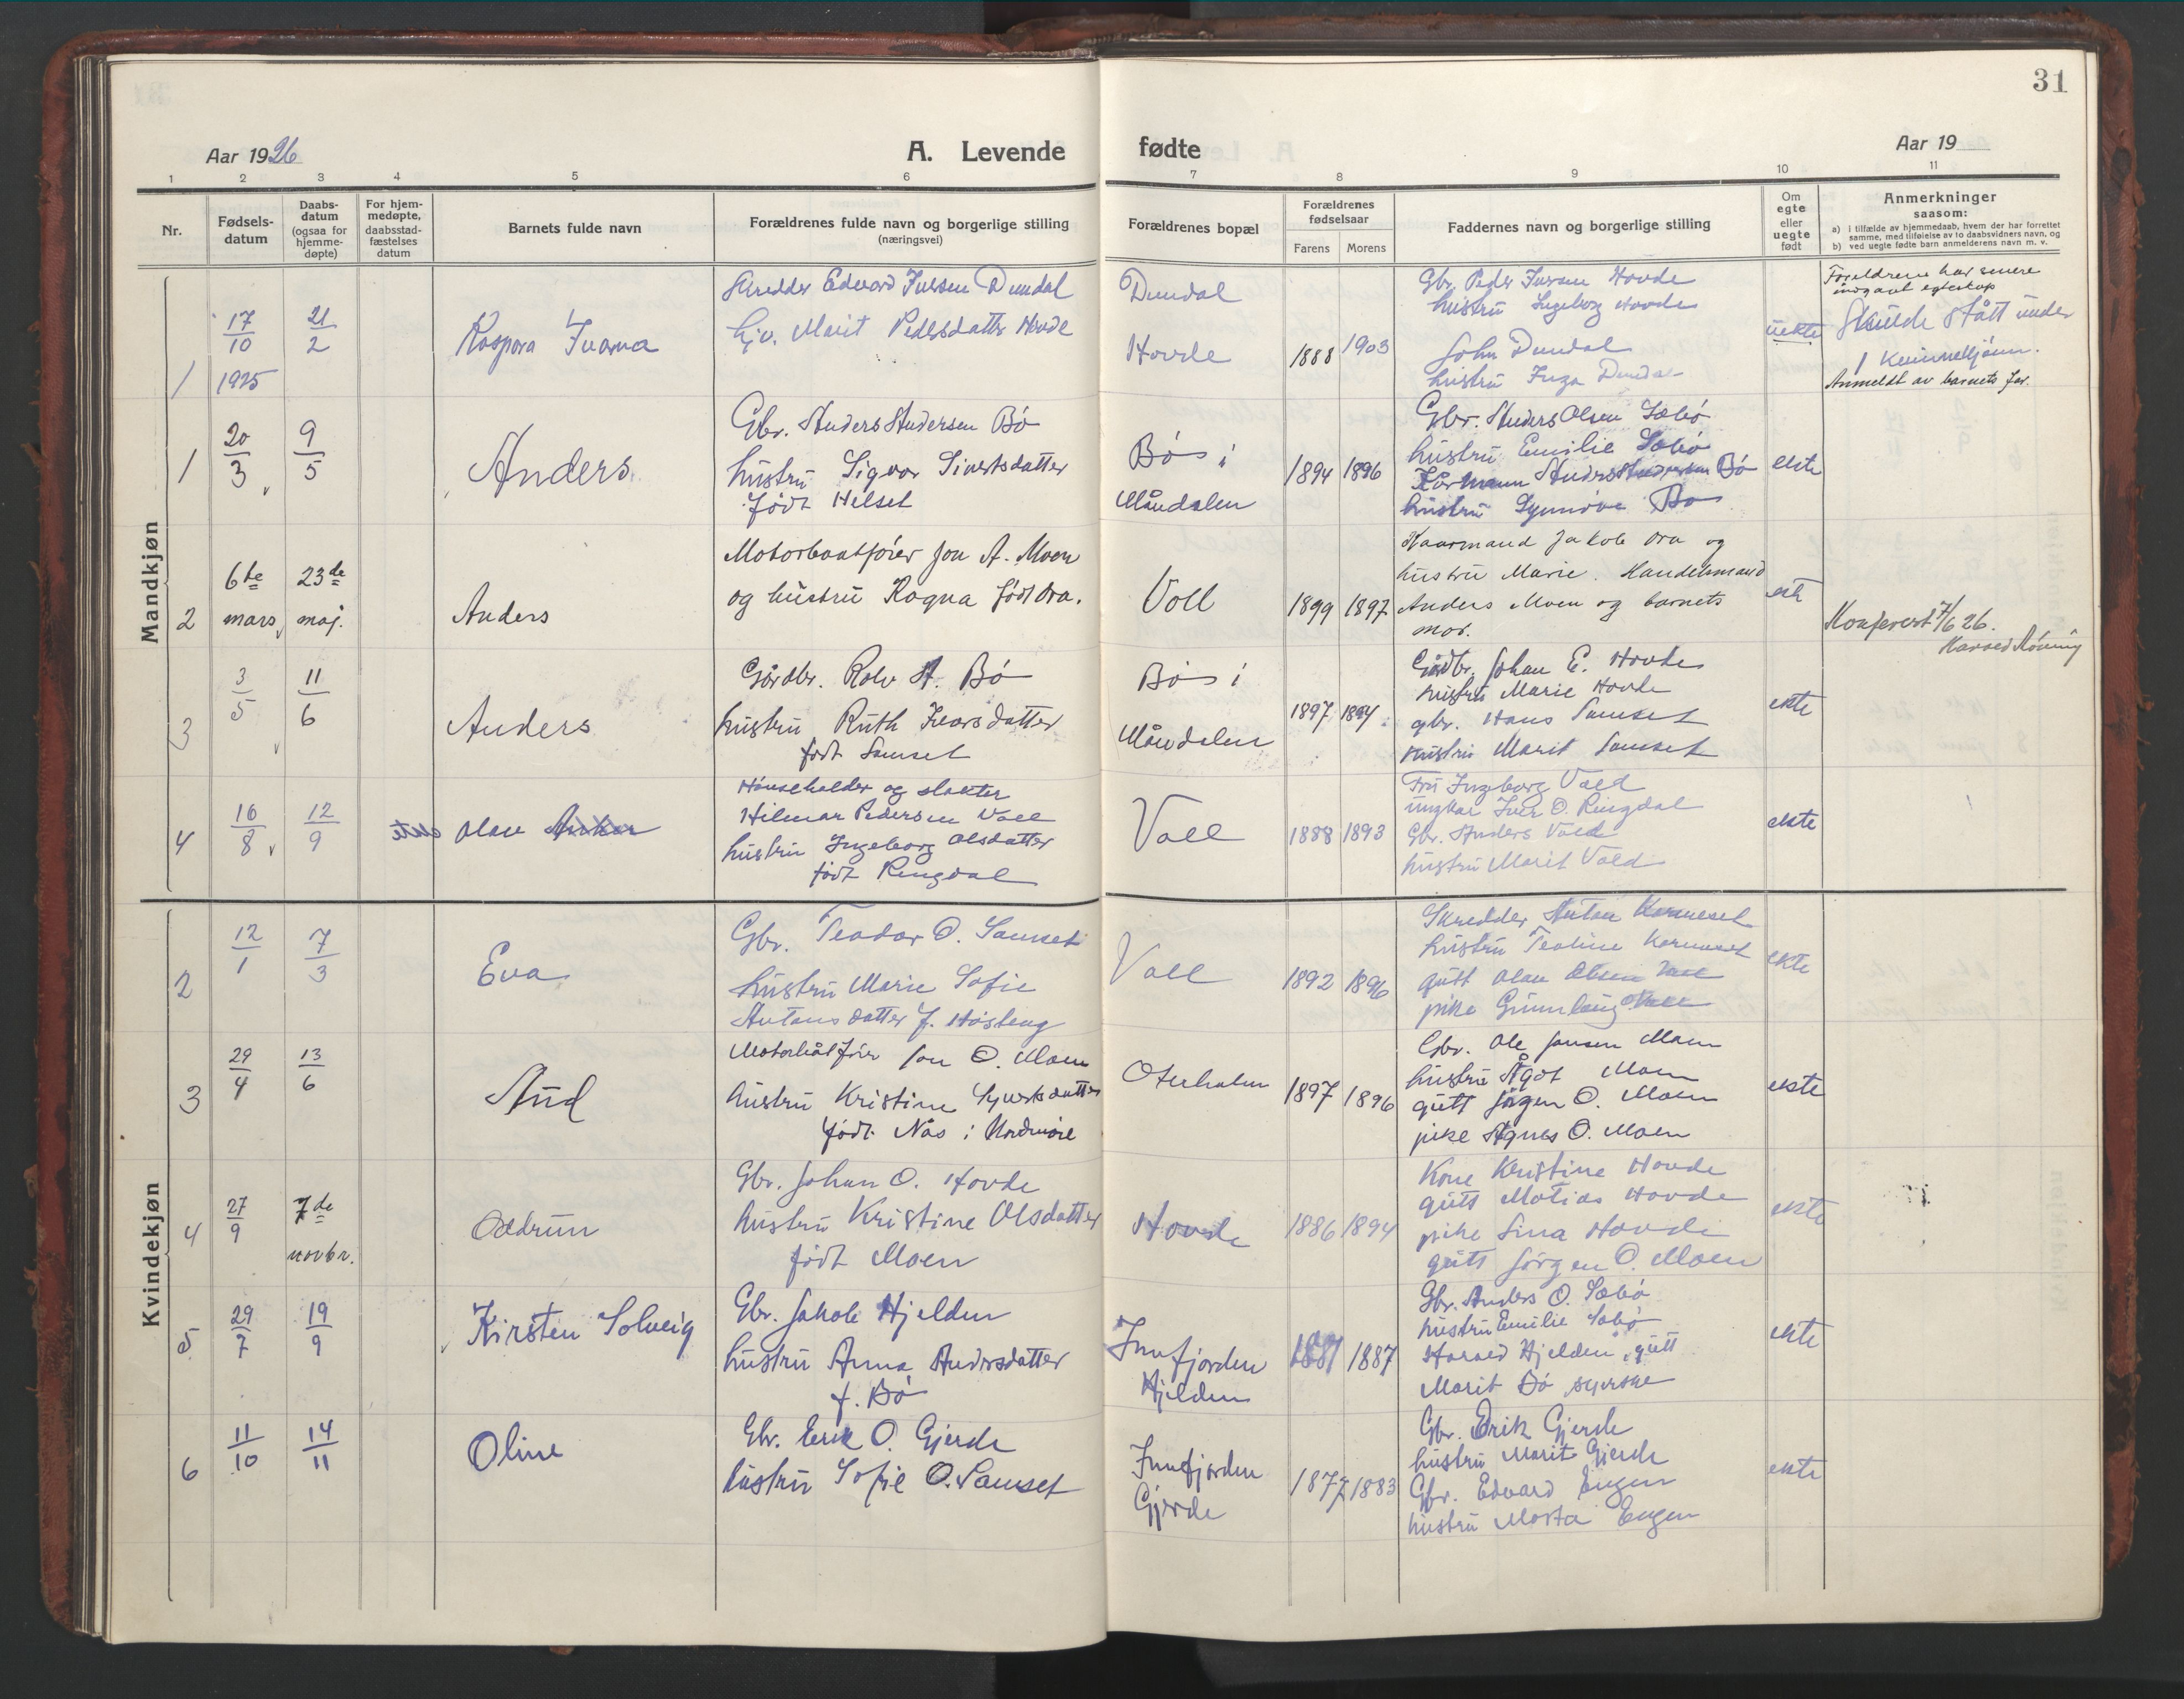 31
Aar 1926
A. Levende
fødte
Aar 19
1 2 3 4 5 6 7 8 9 10 11
Nr.
Fødsels-
datum
Daabs-
datum
(ogsaa for
hjemme-
døpte)
For hjem-
medøpte,
daabsstad-
fæstelses
datum
Barnets fulde navn
Forældrenes fulde navn og borgerlige stilling
(næringsvei)
Forældrenes bopæl
Forældrenes
fødselsaar
Farens Morens
Faddernes navn og borgerlige stilling
Om
egte
eller
uegte
født
Anmerkninger
saasom:
a) i tilfælde av hjemmedaab, hvem der har forrettet
samme, med tilføielse av to daabsvidners navn, og
b) ved uegte fødte barn anmelderens navn m. v.
Mandkjøn
1
17/10
1925
21/2
Kaspara Ivarna
Skredder Edvard Iversen Dundal
hjv. Marit Pedersdatter Hovde
Dundal
Hovde
1888 1903
Gbr. Peder Iversen Hovde
hustru Ingeborg Hovde
John Dundal
hustru Inga Dundal
uekte
Foreldrene har senere
indgaat egteskap
Skulde stått under
1 Kvinnekjønn.
Anmeldt av barnets far.
1
20/3
9/5
Anders
Gbr. Anders Andersen Bø
hustru Signor Sivertsdatter
født Helset
Bø i
Måndalen
1894 1896
Gbr. Anders Olsen Sæbø
hustru Emilie Sæbø
Kårmann Anders Andersen Bø
hustru Synnøve Bø
ekte
2
6te
mars
23de
maj.
Anders
Motorbaatfører Jon A. Moen
og hustru Ragna født Ora.
Voll
1899 1897
Kaarmand Jakob Ora og
hustru Marie. Handelsmand
Anders Moen og barnets
mor.
ekte
Konferert 7/6 26.
3
3/5
11/6
Anders
Gårdbr. Rolv A. Bø
hustru Ruth Ivarsdatter
født Samset
Bø i
Måndalen
1897 1894
Gårdbr. Johan E. Hovde
hustru Marie Hovde
gbr. Hans Samset
hustru Marit Samset
ekte
4
16/8
12/9
Olav Anker
Hønseholder og slakter
Hilmar Pedersen Voll
hustru Ingeborg Olsdatter
født Ringdal
Voll
1888 1893
Fru Ingeborg Vold
ungkar Iver O. Ringdal
Gbr. Anders Vold
hustru Marit Vold
ekte
Kvindekjøn
2
12/1
7/3
Eva
Gbr. Teodor O. Samset
hustru Marie Sofie
Antonsdatter f.
Voll
1892 1896
Skredder Anton Korneset
hustru Teoline Korneset
gutt Olav Olsen Voll
pike Gunnlaug Voll
ekte
3
29/4
13/6
Aud
Motorbåtfører Jon O. Moen
hustru Kristine Sjurtsdatter
født Nås i Nordmøre
Oterholm
1897 1896
Gbr. Ole Jonsen Moen
hustru Ågot Moen
gutt Jørgen O. Moen
pike Agnes O. Moen
ekte
4
27/9
7de
novbr.
Oddrun
Gbr. Johan O. Hovde
hustru Kristine Olsdatter
født Moen
Hovde
1886 1894
Kone Kristine Hovde
gutt Matias Hovde
pike Lina Hovde
gutt Jørgen O. Moen
ekte
5
29/7
19/9
Kirsten Solveig
Gbr. Jakob Hjelden
hustru Anna Andersdatter
f. Bø
Innfjorden
Hjelden
1887 1887
Gbr. Anders O. Sæbø
hustru Emilie Sæbø
Harald Hjelden, gutt
Marit Bø syerske
ekte
6
11/10
14/11
Oline
Gbr. Erik O. Gjerde
hustru Sofie O. Samset
Innfjorden
Gjerde
1877 1883
Gbr. Erik Gjerde
hustru Marit Gjerde
Gbr. Edvard Engen
hustru Marta Engen
ekte